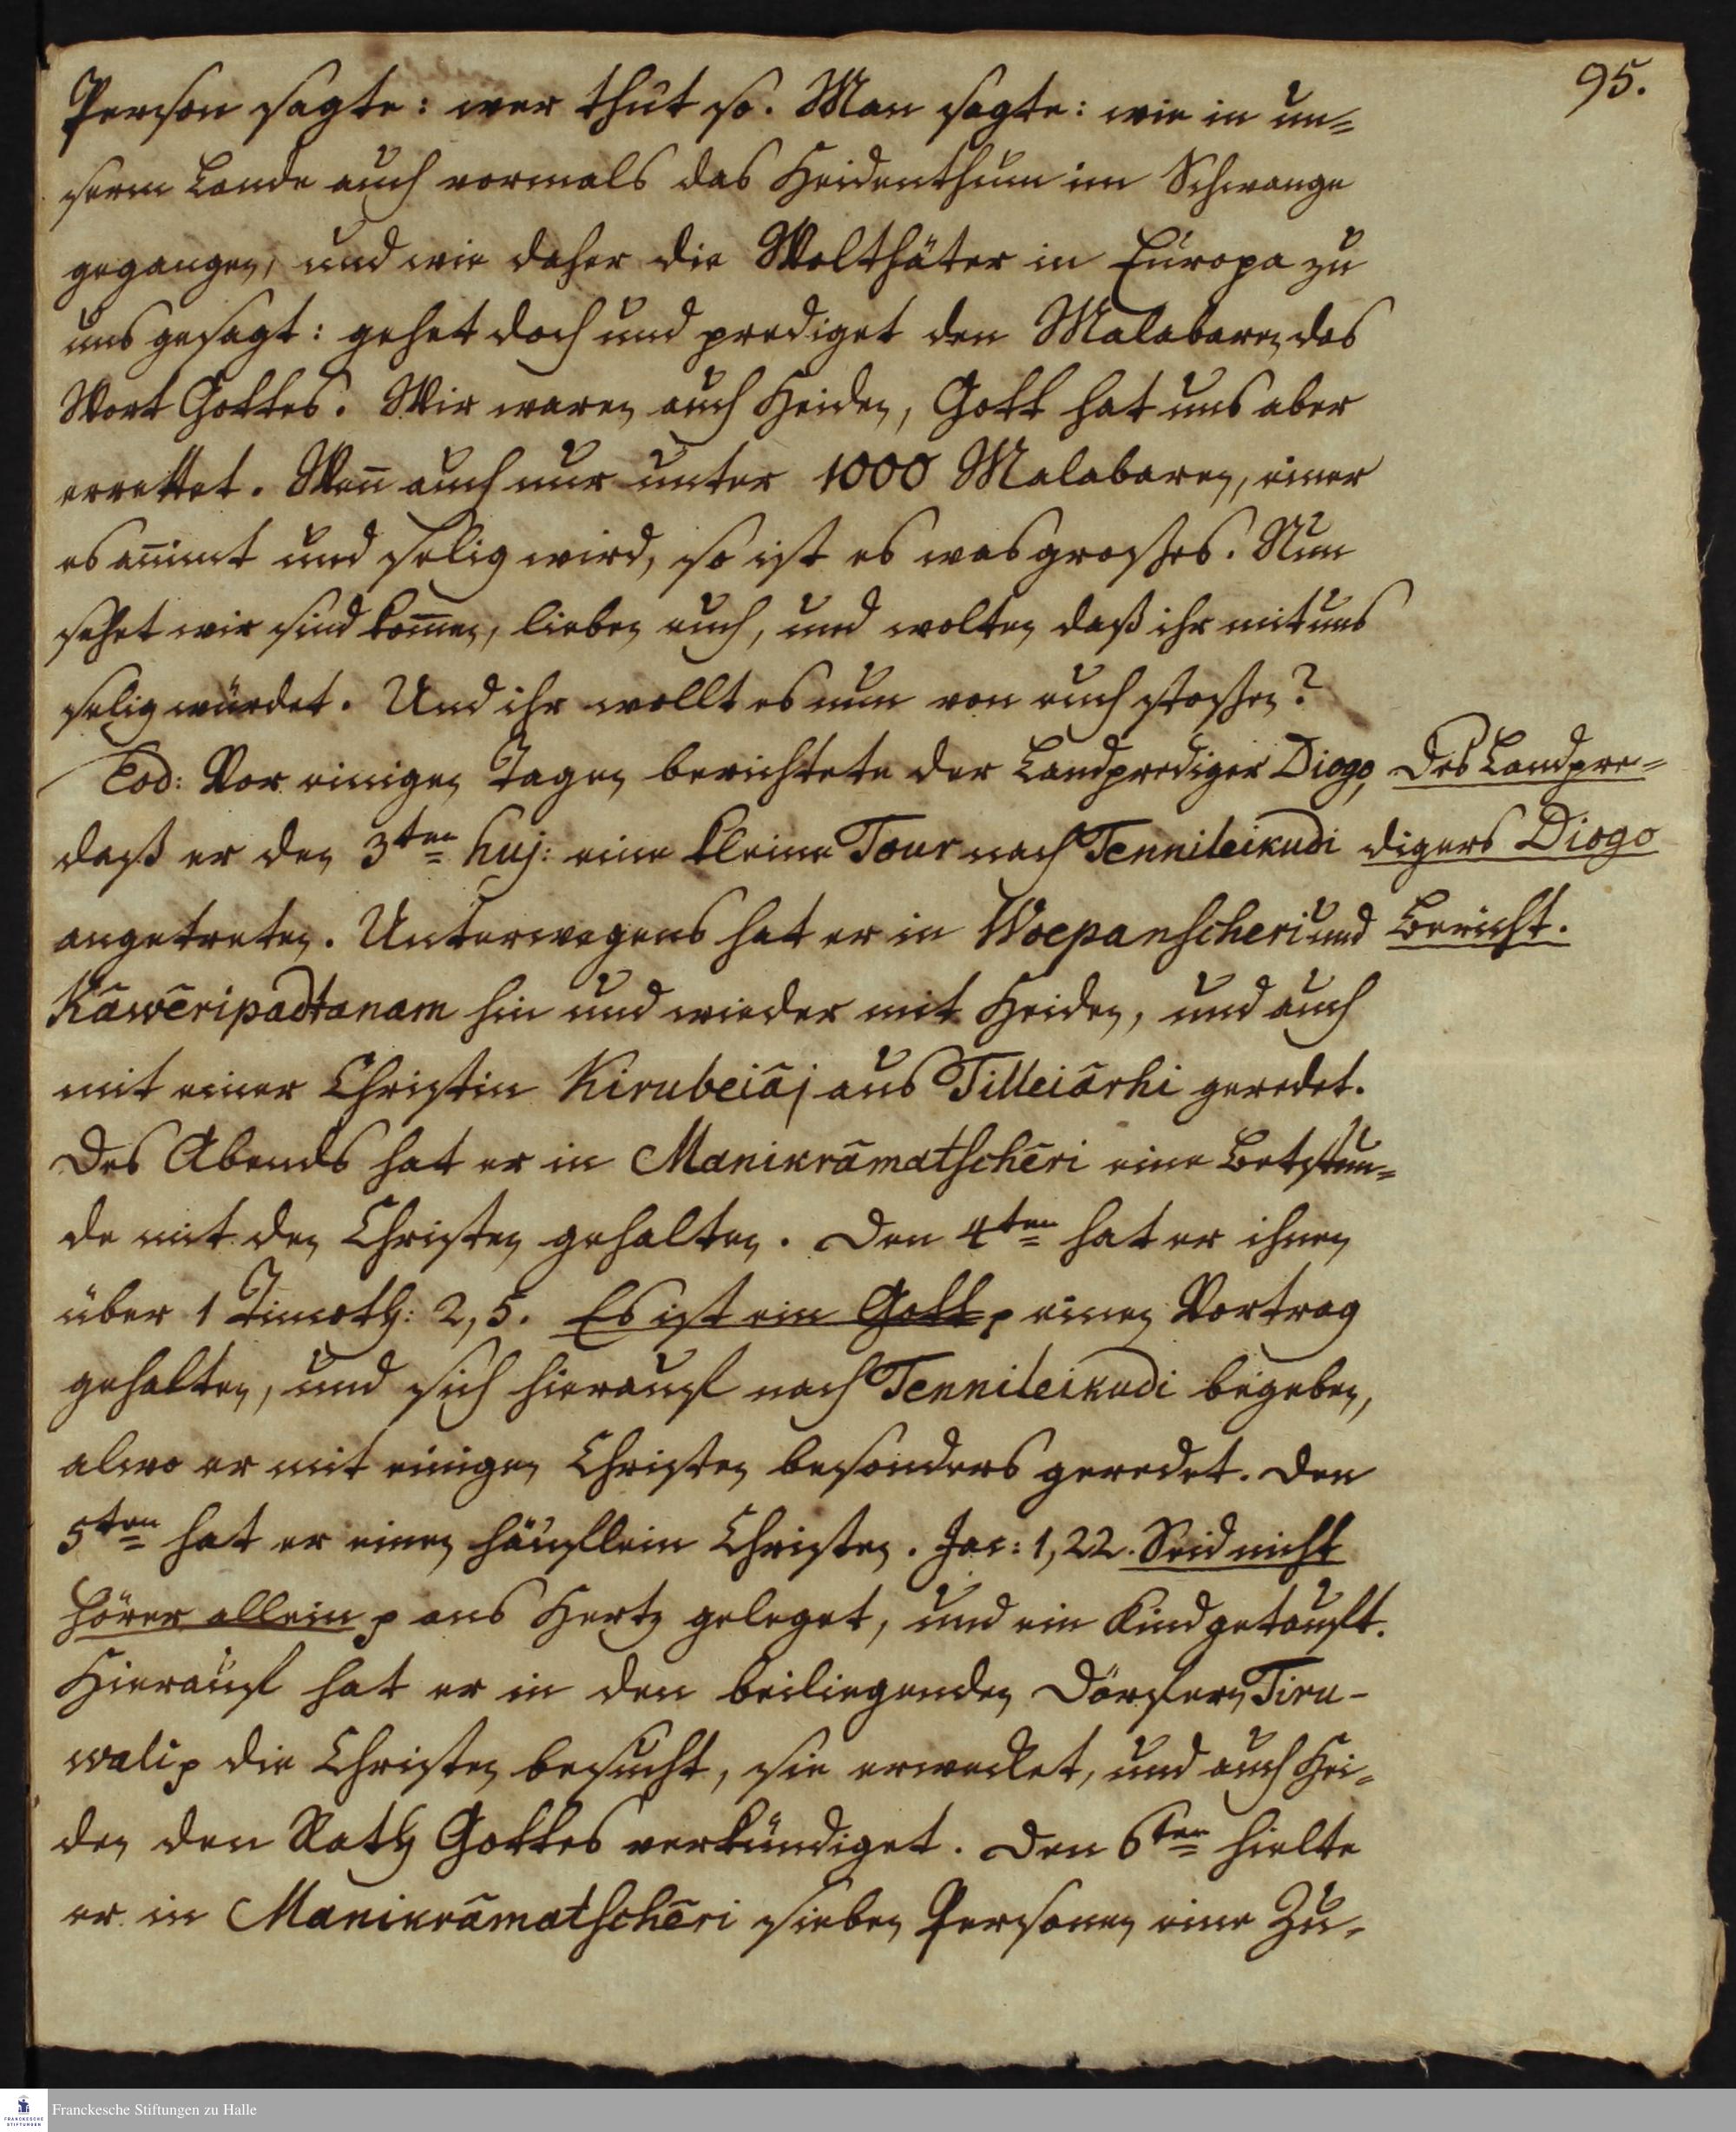 95.
Person sagte: wer thut so. Man sagte: wie in un=
serm Lande auch vormals das Heidenthum im Schwange
gegangen, und wie daher die Wolthäter in Europa zu
uns gesagt: gehet doch und prediget den Malabaren das
Wort Gottes. Wir waren auch Heiden, Gott hat uns aber
errettet. Wen̄ auch nur unter 1000 Malabaren, einer
es an̄imt und selig wird, so ist es was grosses. Nun
sehet wir sind kom̄en, lieben euch, und wolten daß ihr mit uns
selig würdet. Und ihr wollt es nun von euch stossen?
Eod: Vor einigen Tagen berichtete der Landprediger Diogo,
daß er den 3ten huj: eine kleine Tour nach Tennileikudi
angetreten. Unterwegens hat er in Woepanscheri und
Kāwēripadtanam hin und wieder mit Heiden, und auch
mit einer Christin Kirubeiāj aus Tilleiārhi geredet.
Des Abends hat er in Manikrāmatschēri eine Betstun=
de mit den Christen gehalten. Den 4ten hat er ihnen
über 1 Timoth: 2, 5. Es ist ein Gott p einen Vortrag
gehalten, und sich hierauf nach Tennileikudi begeben,
alwo er mit einigen Christen besonders geredet. Den
5ten hat er einen häuflein Christen. Jac: 1, 22. Seid nicht
hörer allein p ans Hertz geleget, und ein Kind getauft.
Hierauf hat er in den beiliegenden Dörfern Tiru-
wali p die Christen besucht, sie erwecket, und auch Hei=
den den Rath Gottes verkündiget. Den 6ten hielte
er in Manikrāmatschēri sieben Personen eine Zu=
Des Landpre=
digers Diogo
Bericht.
Franckesche Stiftungen zu Halle
FRANCKESCHE
STIFTUNGEN